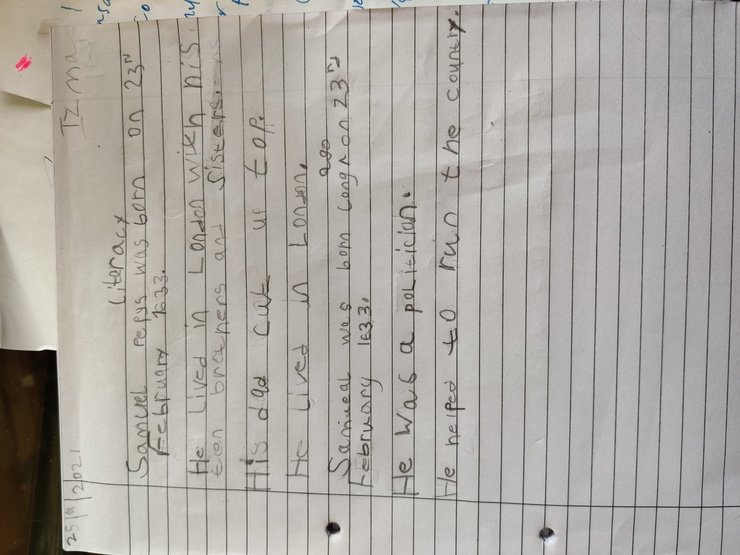 25/11/2021 Izma
Literacy
Samuel pepys was born on 23rd
February 1633.
He lived in London with his
ten brothers and sisters.
His dad cut up top.
He lived in London.
ago
Samueal was born long on 23rd
February 1633.
He was a politician.
He helped to run the country.